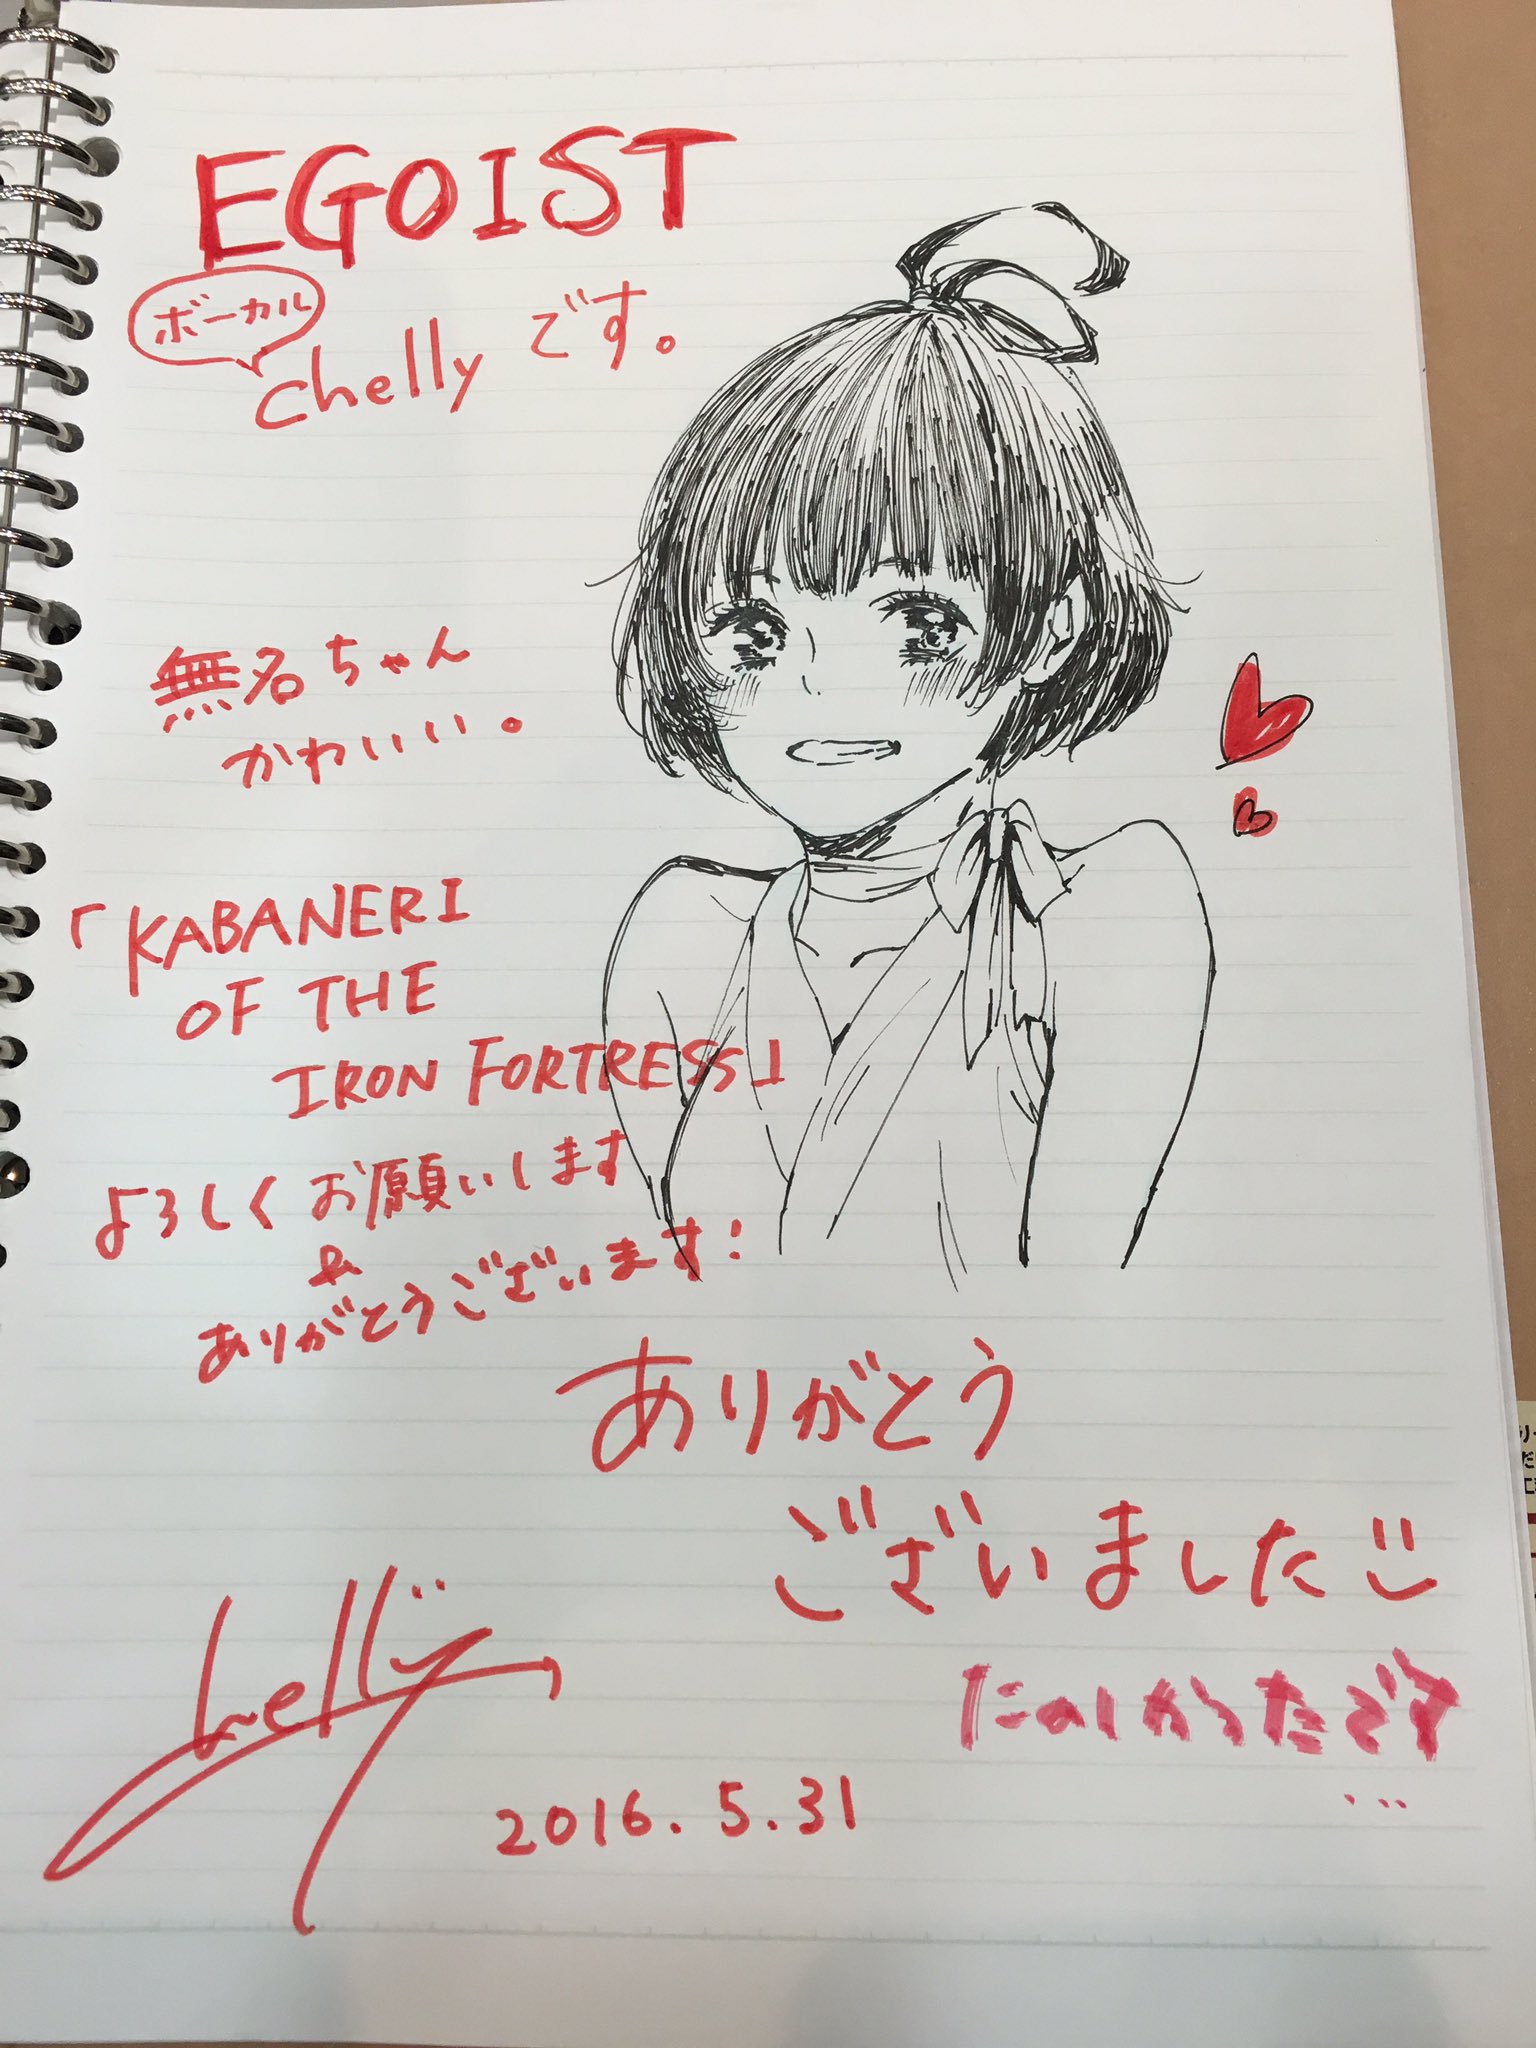 EGOIST
ボーカル
chellyです。
無名ちゃん
かわいい。
「KABANERI
OF THE
IRON FORTRESS」
よろしくお願いします
&
ありがとうございます!
ありがとう
ございました
たのしかったです
...
chelly
2016.5.31